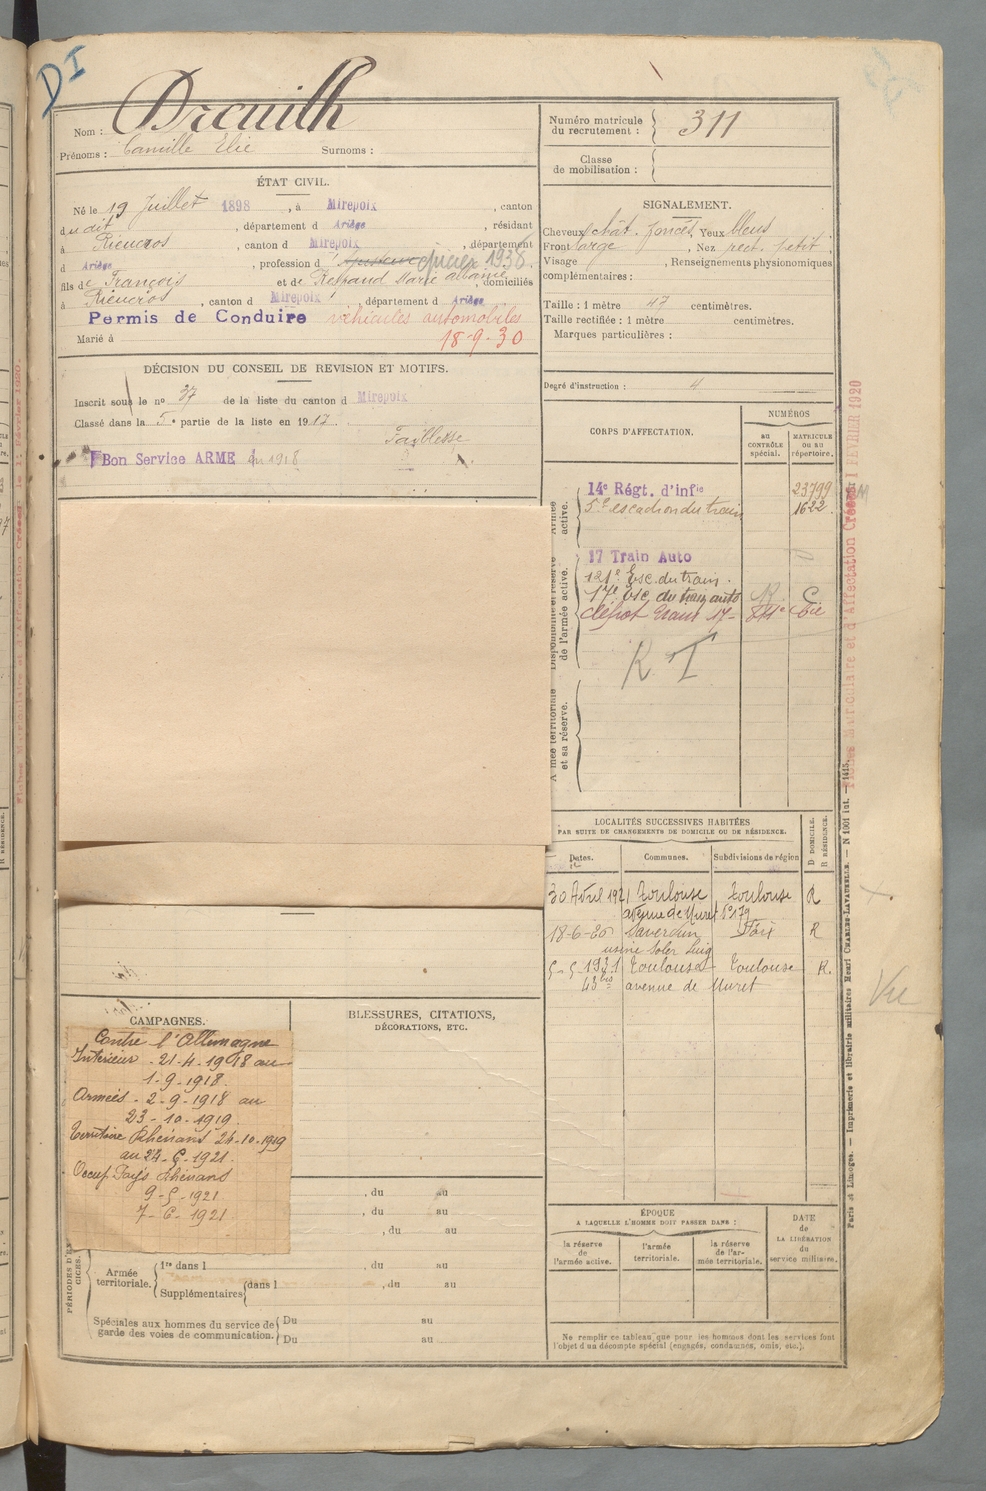 DI
Nom : Dreuilh
Prénoms : Camille Elie Surnoms :
Numéro matricule du recrutement : 311
Classe de mobilisation :
ÉTAT CIVIL.
Né le 19 Juillet 1898, à Mirepoix, canton
dudit, département d Ariège, résidant
à Rieucros, canton d Mirepoix, département
d Ariège, profession d épicier 1936
fils de François et de Raspaud Marie Albanie, domiciliés
à Rieucros, canton d Mirepoix, département d Ariège
Permis de Conduire véhicules automobiles
Marié à 18-9-30
SIGNALEMENT.
Cheveux chât. foncés Yeux bleus
Front large, Nez rect. petit,
Visage , Renseignements physionomiques
complémentaires :
Taille : 1 mètre 47 centimètres.
Taille rectifiée : 1 mètre centimètres.
Marques particulières :
Degré d'instruction : 4
DÉCISION DU CONSEIL DE REVISION ET MOTIFS.
Inscrit sous le n° 37 de la liste du canton d Mirepoix
Classé dans la 5e partie de la liste en 1917.
Faiblesse
Bon Service ARMÉ en 1918
CORPS D'AFFECTATION.
NUMÉROS
au CONTRÔLE spécial.
MATRICULE ou au répertoire.
Armée active.
14e Régt. d'infie 23799
5e escadron du train 1622
Disponibilité et réserve de l'armée active.
17 Train Auto
121e Esc. du train.
17e Esc. du train auto R C
dépôt Train 17 - Cie
R T
A mée territoriale et sa réserve.
LOCALITÉS SUCCESSIVES HABITÉES
PAR SUITE DE CHANGEMENTS DE DOMICILE OU DE RÉSIDENCE.
Dates. Communes. Subdivisions de région
D DOMICILE. R RÉSIDENCE.
30 Avril 1921 Toulouse Toulouse R
avenue de Muret N°179
18-6-26 Saverdun Foix R
usine Soler Puig
5-5-1931 Toulouse Toulouse R.
43 bis avenue de Muret
CAMPAGNES.
Contre l'Allemagne
Intérieur - 21-4-1918 au
1-9-1918.
Armées - 2-9-1918 au
23-10-1919.
Territoire Rhénans 24-10-1919
au 24-6-1921.
Occup. Pays Rhénans
9-5-1921
7-6-1921.
BLESSURES, CITATIONS,
DÉCORATIONS, ETC.
, du au
, du au
, du au
PÉRIODES D'EXERCICES.
Armée territoriale.
1re dans l , du au
Supplémentaires dans l , du au
Spéciales aux hommes du service de garde des voies de communication.
Du au
Du au
ÉPOQUE
A LAQUELLE L'HOMME DOIT PASSER DANS :
la réserve de l'armée active.
l'armée territoriale.
la réserve de l'armée territoriale.
DATE de LA LIBÉRATION du service militaire.
Ne remplir ce tableau que pour les hommes dont les services font
l'objet d'un décompte spécial (engagés, condamnés, omis, etc.).
Fiches Matriculaire et d'Affectation Créées le 1 FEVRIER 1920
Vu
Paris et Limoges. — Imprimerie et librairie militaires Henri CHARLES-LAVAUZELLE. — N 1001 int. — 1415.